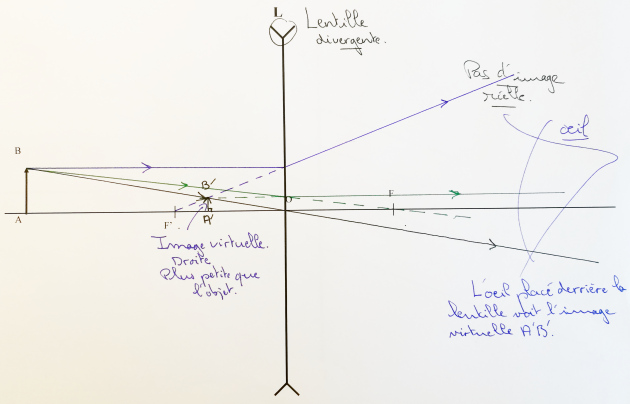 L
Lentille
divergente.
Pas d'image
réelle.
œil
B
B'
O
F
A
F'
A'
Image virtuelle.
Droite
Plus petite que
l'objet.
L'oeil placé derrière la
lentille voit l'image
virtuelle A'B'.